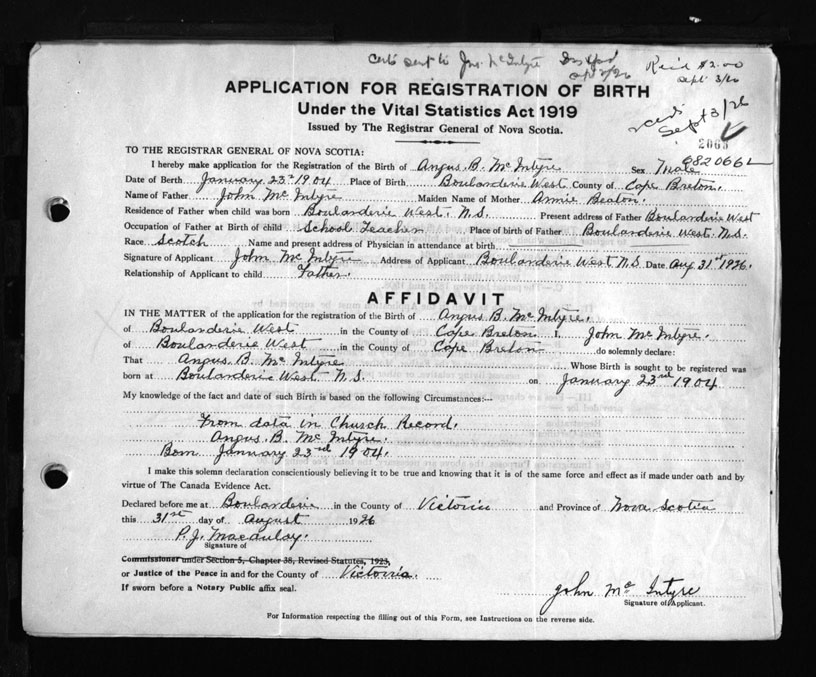 Cert sent to Jno. McIntyre
Sept 3/26
Rec'd $2.00
Sept 3/26
APPLICATION FOR REGISTRATION OF BIRTH
Under the Vital Statistics Act 1919
Issued by The Registrar General of Nova Scotia.
TO THE REGISTRAR GENERAL OF NOVA SCOTIA:
I hereby make application for the Registration of the Birth of Angus B. McIntyre Sex Male
Date of Birth January 23rd 1904 Place of Birth Boulanderie West County of Cape Breton.
Name of Father John McIntyre Maiden Name of Mother Annie Beaton.
Residence of Father when child was born Boulanderie West. N.S. Present address of Father Boulanderie West
Occupation of Father at Birth of child School Teacher Place of birth of Father Boulanderie West. N.S.
Race Scotch Name and present address of Physician in attendance at birth
Signature of Applicant John McIntyre Address of Applicant Boulanderie West N.S. Date Aug 31st 1926.
Relationship of Applicant to child Father.
AFFIDAVIT
IN THE MATTER of the application for the registration of the Birth of Angus B. McIntyre.
of Boulanderie West in the County of Cape Breton I, John McIntyre.
of Boulanderie West in the County of Cape Breton do solemnly declare:
That Angus B. McIntyre Whose Birth is sought to be registered was
born at Boulanderie West N.S. on January 23rd 1904
My knowledge of the fact and date of such Birth is based on the following Circumstances:—
From data in Church Record.
Angus. B. McIntyre.
Born January 23rd 1904.
I make this solemn declaration conscientiously believing it to be true and knowing that it is of the same force and effect as if made under oath and by
virtue of The Canada Evidence Act.
Declared before me at Boulanderie in the County of Victoria and Province of Nova Scotia
this 31st day of August 1926
P. J. Macaulay.
Signature of
Commissioner under Section 5, Chapter 38, Revised Statutes, 1923,
or Justice of the Peace in and for the County of Victoria.
If sworn before a Notary Public affix seal.
John McIntyre
Signature of Applicant.
For Information respecting the filling out of this Form, see Instructions on the reverse side.